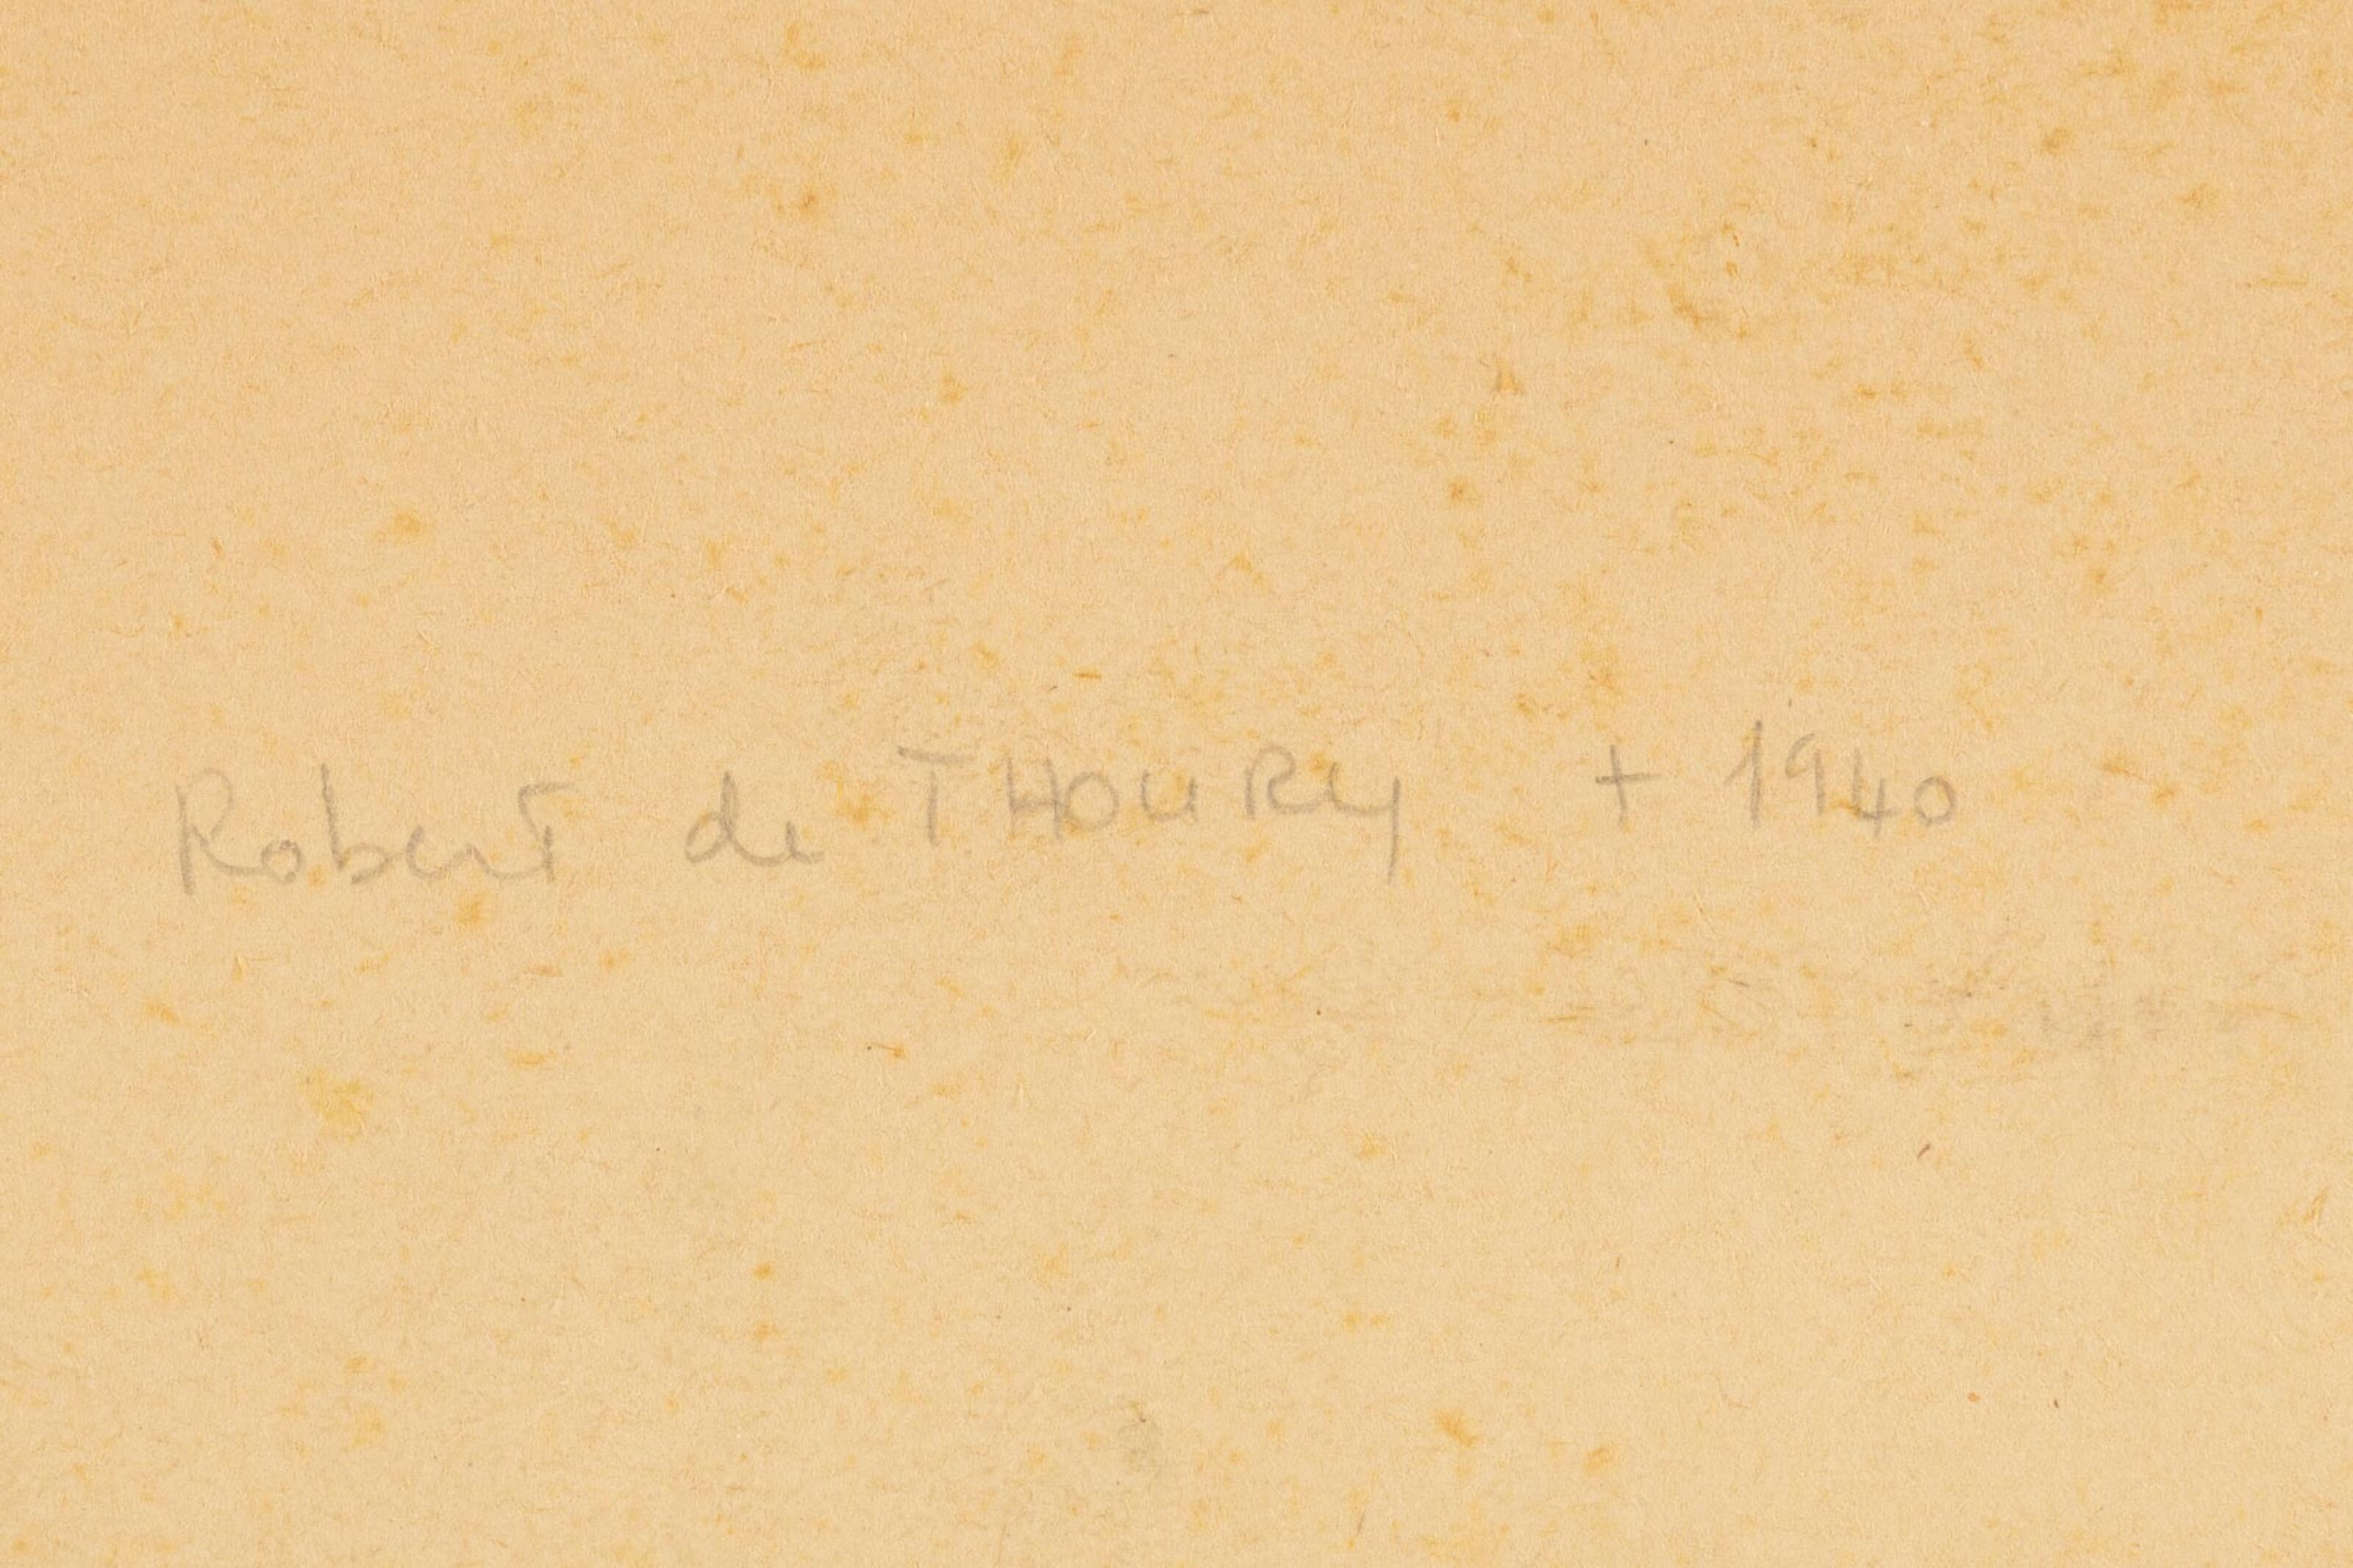 Robert de THOURY + 1940